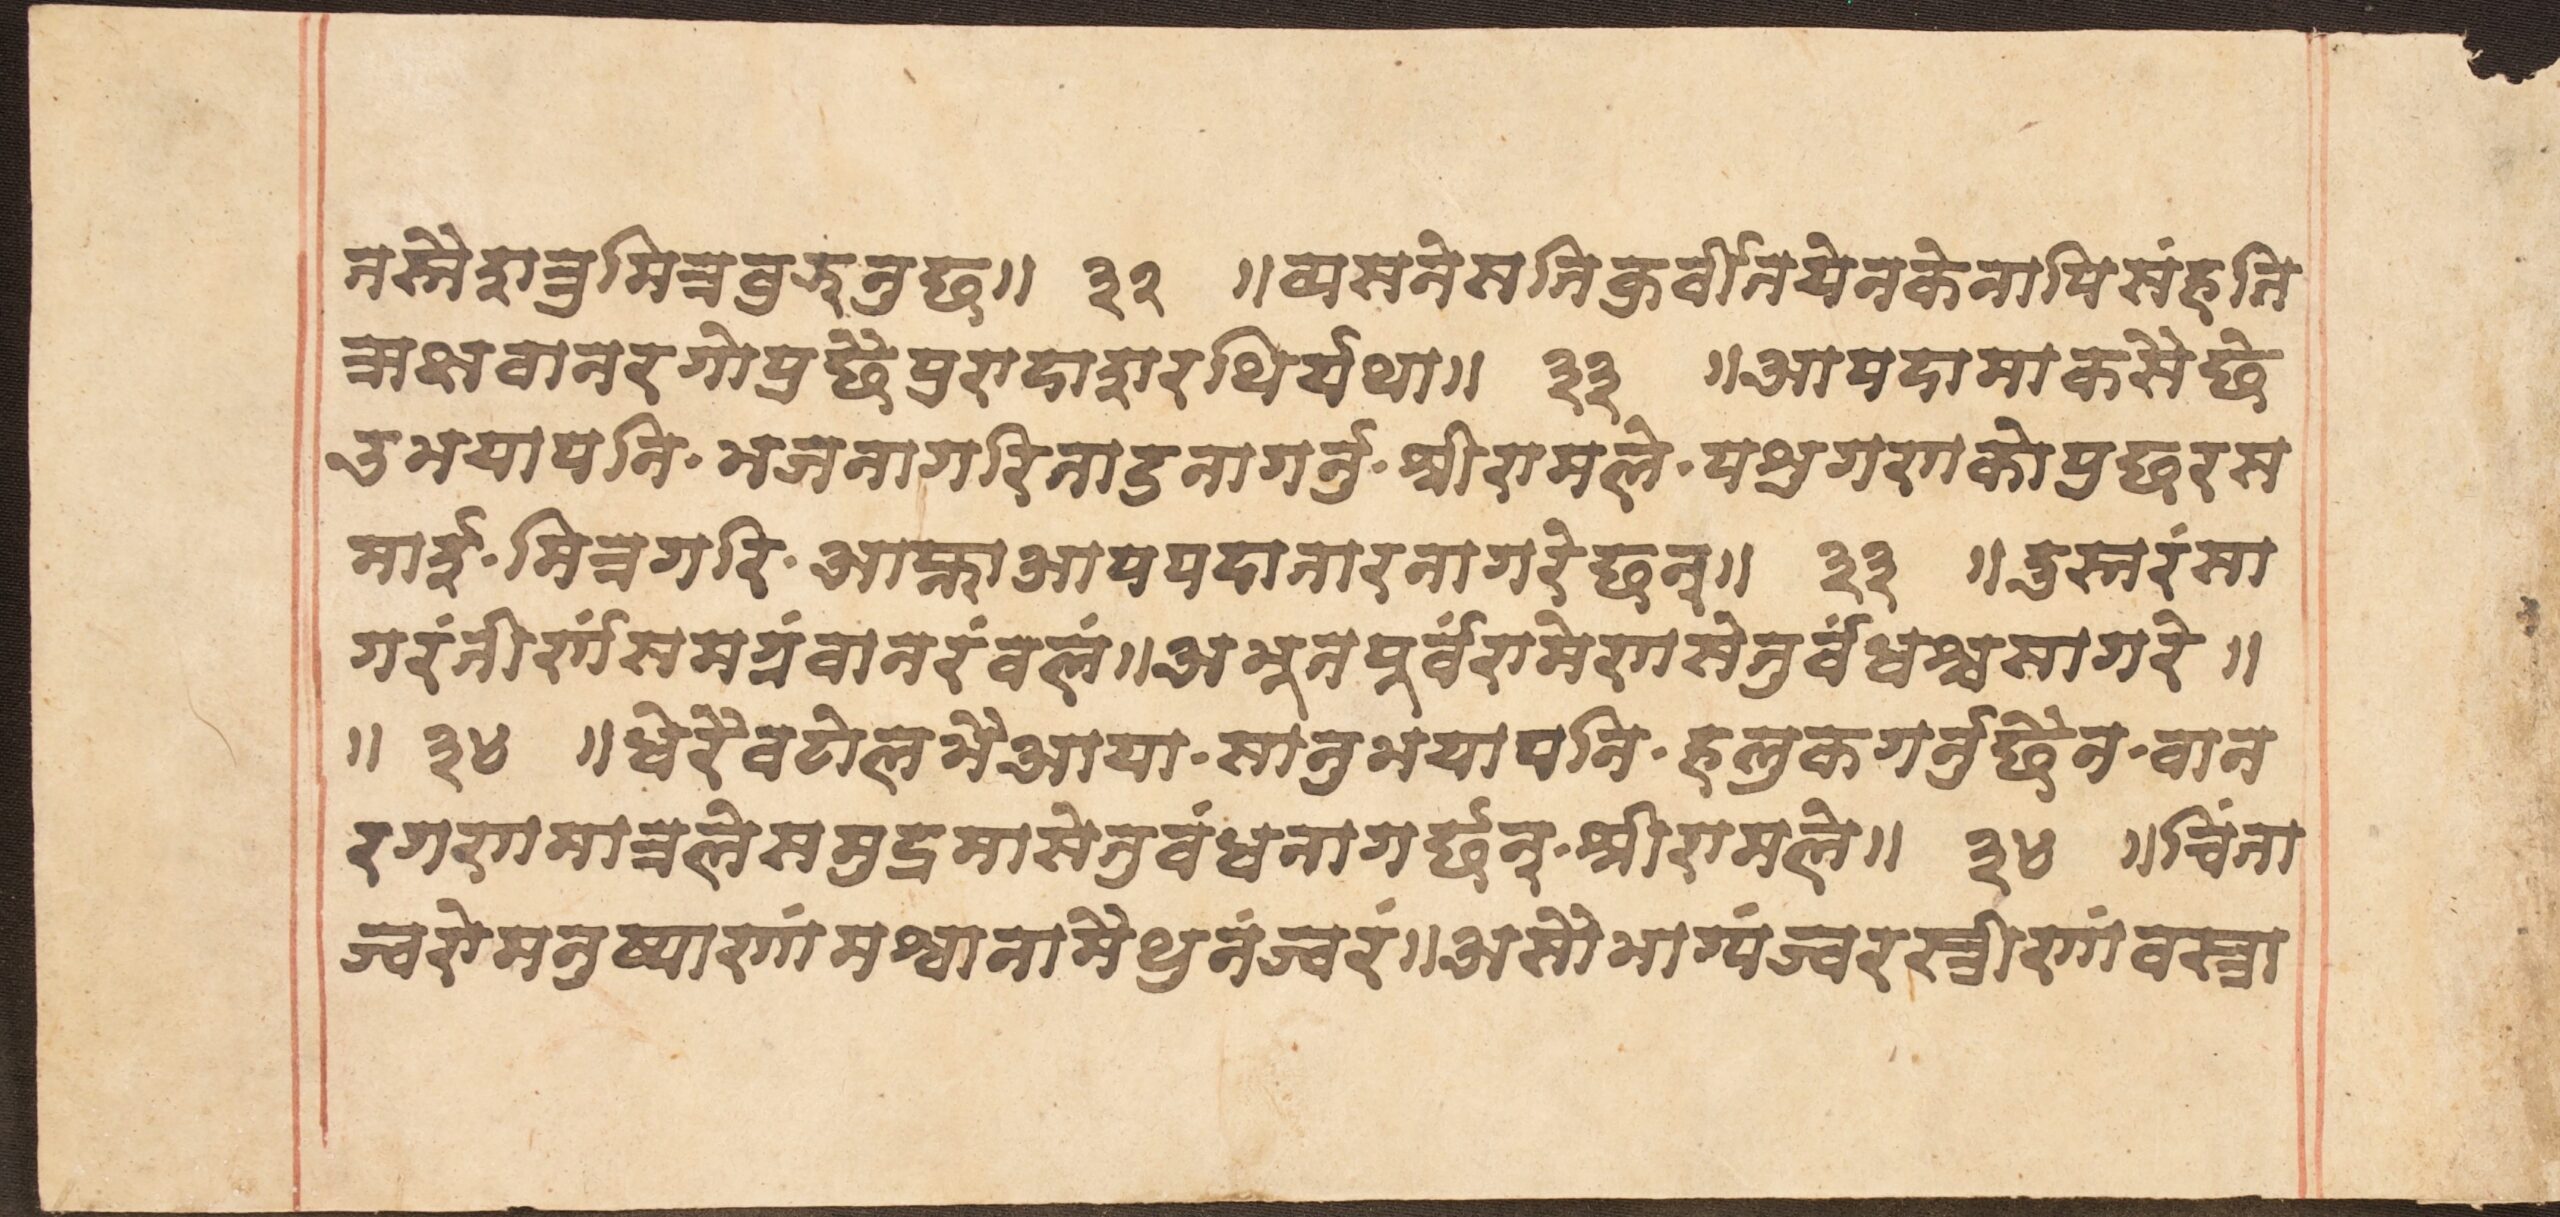 तस्तै शत्रु मित्र वुझ्नु छ॥ ३२ ॥व्यसने सति कुर्वीत येन केनापि संहति
ऋक्षवानरगो पुछै पुरा दाशरथिर्यथा॥ ३३ ॥आपदामा कसै छे
उ भयापनि· भजनागरि नाउ नागर्नु· श्रीरामले· पशुगणको पुछर स
माई· मित्र गरि· आफ्ना आपपदा तार ना गरे छन्॥ ३३ ॥दुस्तरं सा
गरं तीर्णं समग्रं वानरं वलं॥अभूतपूर्वं रामेण सेतुर्वंधश्च सागरे ॥
॥ ३४ ॥धेरै वटोल भै आया· सानु भयापनि· हलुक गर्नु छैन· वान
रगण मात्रले समुद्रमा सेतुवंधना गर्छन्· श्रीरामले॥ ३४ ॥चिंता
ज्वरो मनुष्याणां मश्वाना मैथुनं ज्वरं॥असौभाग्यं ज्वर स्त्रीणां वस्त्रा